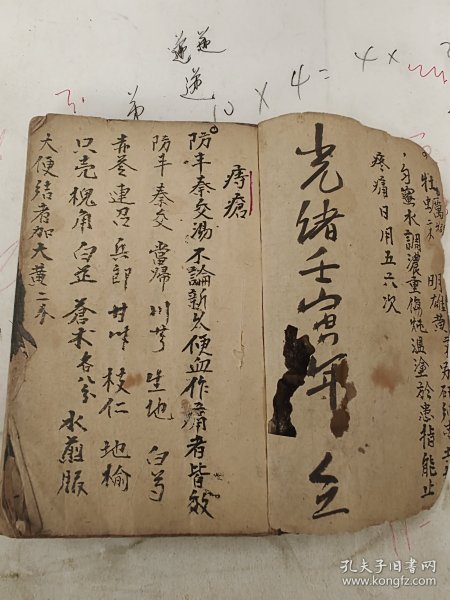 牡
明雄黄
蜜水調濃重傷炖温塗於患指能止
疼痛日用五六次
光緒壬寅年 立
痔瘡
防丰秦交湯不論新久便血作痛者皆效
防丰 秦交 當歸 川芎 生地 白芍
赤苓 連召 兵郎 甘草 枝仁 地榆
只壳 槐角 白芷 蒼术各八分 水煎服
大便结者加大黄二夲
递 递
递
弟
10 × 4 = 4 ×
孔夫子旧书网
www.kongfz.com